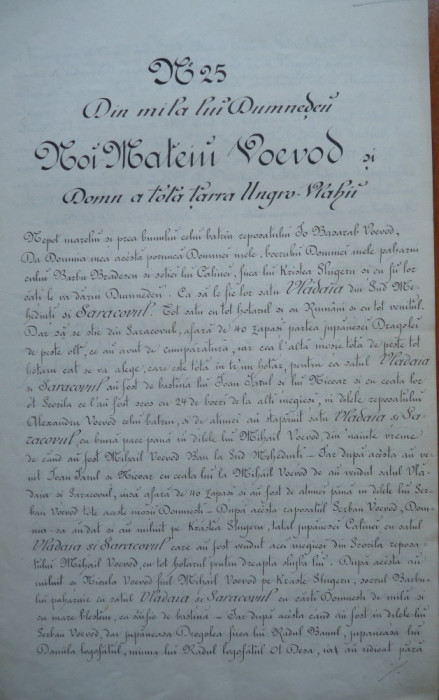 Nº 25
Din mila lui Dumneḑeu
Noi Mateiu Voevod și
Domn a tótă țarra Ungro-Vlahii
Nepot marelui și prea bunului celui batrin reposatului Io Basarab Voevod,
Da Domnia mea acésta porunca Domniei mele, boerului Domniei mele paharni
cului Barbu Bradescu si sotiei lui Calinei, fiica lui Kristea Slugeru si cu fiii lor
cați le va dărui Dumneḑeu. Ca să le fie lor satu Vladaia din Sud Me-
hedinti si Saracovul. Tot satu cu tot hotarul si cu Rumâni si cu tot venitul.
Dar să se stie din Saracovul, afară de 40 zapasi partea jupânesei Dragolei
de peste olt, ce au avut de cumparatură, iar cea l'altă mosie tótă de peste tot
hotaru cat se va alege, care este tótă in tr'un hotar, pentru ca satul Vladaia
si Saracovul au fost de bastina lui Ioan Iarul si lui Nicoar si cu ceata lor
et Scorila ce l'au fost scos cu 24 de boeri de la alti megiesi, in dilele reposatului
Alexandru Voevod celui batrin, si de atunci au stapanit satu Vladaia si Sa-
racovul cu bună pace pană in dilele lui Mihail Voevod, din 'nainte vreme
de când au fost Mihail Voevod Ban la Sud Mehedinti – Iar după acésta au ve-
nit Ioan Iarul si Nicoar cu ceata lui la Mihail Voevod de au vendut satul Vla-
daia si Saracovul, insă afara de 40 zapasi si au fost de atunci pană in dilele lui Ser-
ban Voevod tóte aceste mosii Domnesti – După acésta raposatul Serban Voevod, Dom-
nia-sa au dat si au miluit pe Krâstea Slugeru, tatul jupânesei Calinei cu satul
Vladaia si Saracovul care au fost vendut acei megiesi din Scorila reposa-
tului Mihail Voevod, cu tot hotarul pentru drépta slujba lui. După acésta au
miluit si Nicula Voevod fiul Mihail Voevod pe Krâste Slugeru, socrul Barbu-
lui paharnic cu satul Vladaia si Saracovul cu cărti Domnesti de milă si
cu mare blestem, ca să fie de bastină – Iar după acésta cand au fost in dilele lui
Serban Voevod, dar jupâneasa Dragolea fiica lui Radul Banul, jupâneasa lui
Danila logofătul, muma lui Radul logofătul ot Desa, iar au ridicat pâră